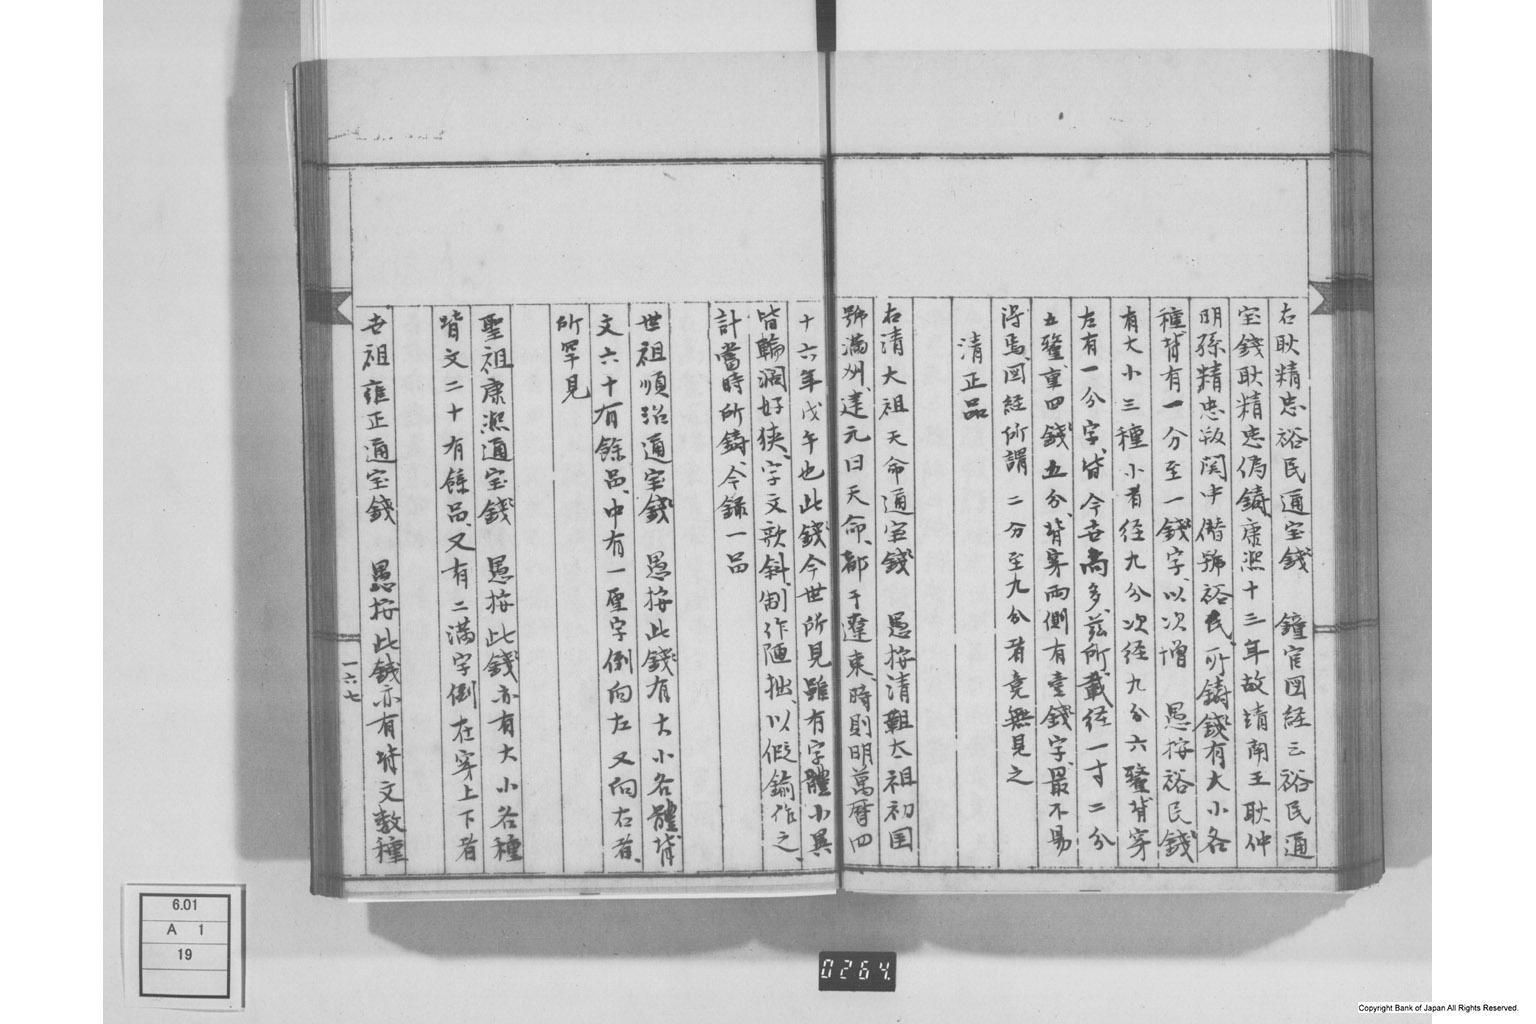 右耿精忠裕民通宝錢　鐘官図経云裕民通
宝錢耿精忠偽鑄康熙十三年故靖南王耿仲
明孫精忠叛閩中僭號裕民所鑄錢有大小各
種背有一分至一錢字以次增　愚按裕民錢
有大小三種小者径九分次径九分六釐背穿
左有一分字背今古尚多茲所載径一寸二分
五釐重四錢五分背穿兩側有壹錢字最不易
得焉図経所謂二分至九分者竟無見之
清正品
右清太祖天命通宝錢　愚按清太祖初国
號滿州建元曰天命都于遼東時則明萬曆四
十六年戊午也此錢今世所見雖有字體小異
皆輪濶好狭字文歌斜制作陋拙以假鍮作之
計當時所鑄今錄一品
世祖順治通宝錢　愚按此錢有大小各體背
文六十有餘品中有一厘字倒向左又向右者
所罕見
聖祖康熙通宝錢　愚按此錢亦有大小各種
背文二十有餘品又有二滿字倒在穿上下者
世祖雍正通宝錢　愚按此錢亦有背文数種
一六七
6.01
A 1
19
0264
Copyright Bank of Japan All Rights Reserved.